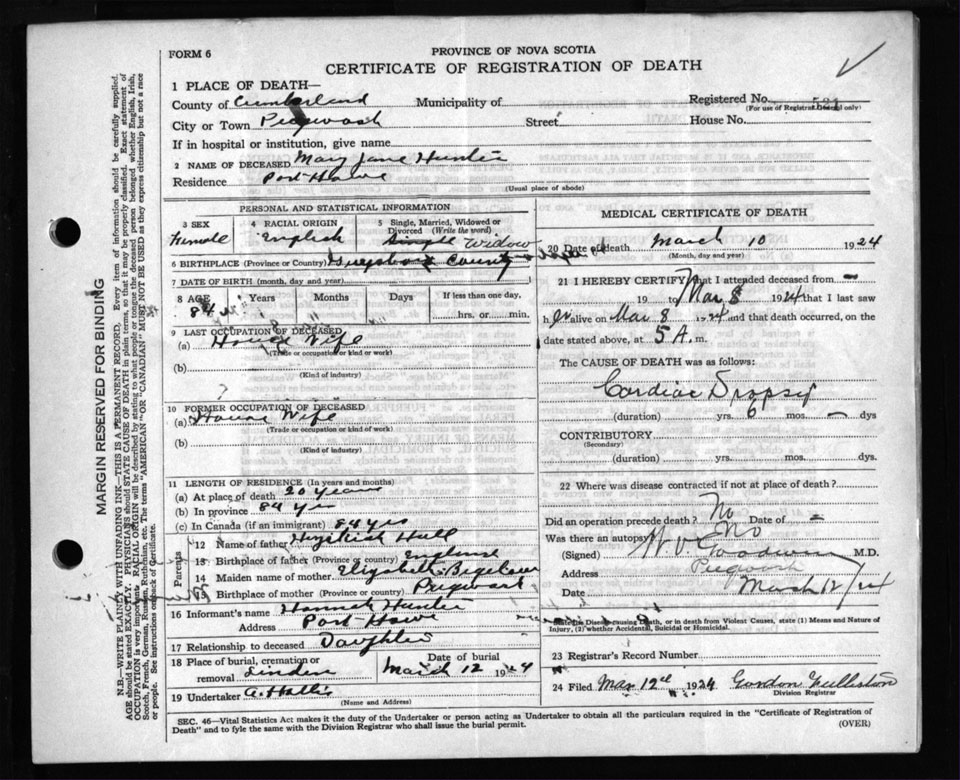 FORM 6
PROVINCE OF NOVA SCOTIA
CERTIFICATE OF REGISTRATION OF DEATH
1 PLACE OF DEATH—
County of Cumberland Municipality of Registered No. 531
(For use of Registrar General only)
City or Town Pugwash Street House No.
If in hospital or institution, give name
2 NAME OF DECEASED Mary Jane Hunter
Residence Port Howe
(Usual place of abode)
PERSONAL AND STATISTICAL INFORMATION
3 SEX
Female
4 RACIAL ORIGIN
English
5 Single, Married, Widowed or Divorced (Write the word)
Single Widow
6 BIRTHPLACE (Province or Country) County
7 DATE OF BIRTH (month, day and year)
8 AGE Years Months Days If less than one day,
84 hrs. or min.
9 LAST OCCUPATION OF DECEASED
(a) House Wife
(Trade or occupation or kind or work)
(b)
(Kind of industry)
10 FORMER OCCUPATION OF DECEASED
(a) House Wife
(Trade or occupation or kind of work)
(b)
(Kind of industry)
11 LENGTH OF RESIDENCE (In years and months)
(a) At place of death 20 years
(b) In province 84 yrs
(c) In Canada (if an immigrant) 84 yrs
Parents
12 Name of father Hull
13 Birthplace of father (Province or country) England
14 Maiden name of mother Elizabeth Bigelow
15 Birthplace of mother (Province or country) Pugwash
16 Informant's name Hannah Hunter
Address Port Howe
17 Relationship to deceased Daughter
18 Place of burial, cremation or removal Linden
Date of burial
March 12 1924
19 Undertaker
(Name and Address)
MEDICAL CERTIFICATE OF DEATH
20 Date of death March 10 1924
(Month, day and year)
21 I HEREBY CERTIFY that I attended deceased from —
19 to Mar 8 1924 that I last saw
her alive on Mar 8 1924 and that death occurred, on
date stated above, at 5 A. m.
The CAUSE OF DEATH was as follows:
Cardiac Dropsy
(duration) yrs. 6 mos. — dys
CONTRIBUTORY
(Secondary)
(duration) yrs. mos. dys.
22 Where was disease contracted if not at place of death?
Did an operation precede death? No Date of —
Was there an autopsy? No
(Signed) Goodwin M.D.
Address Pugwash
Date March 12/24
State the Disease causing Death, or in death from Violent Causes, state (1) Means and Nature of Injury, (2) whether Accidental, Suicidal or Homicidal.
23 Registrar's Record Number
24 Filed Mar 12th 1924 Gordon
Division Registrar
SEC. 46—Vital Statistics Act makes it the duty of the Undertaker or person acting as Undertaker to obtain all the particulars required in the "Certificate of Registration of
Death" and to fyle the same with the Division Registrar who shall issue the burial permit. (OVER)
MARGIN RESERVED FOR BINDING
N.B.—WRITE PLAINLY WITH UNFADING INK—THIS IS A PERMANENT RECORD. Every item of information should be carefully supplied.
AGE should be stated EXACTLY. PHYSICIANS should STATE CAUSE OF DEATH in plain terms, so that it may be properly classified. Exact statement of
OCCUPATION is very important. RACIAL ORIGIN will be described by stating to what people or tongue the deceased person belonged, whether English, Irish,
Scotch, French, German, Russian, Ruthenian, etc. The terms "AMERICAN" OR "CANADIAN" MUST NOT BE USED as they express citizenship but not a race
or people. See instructions on back of Certificate.